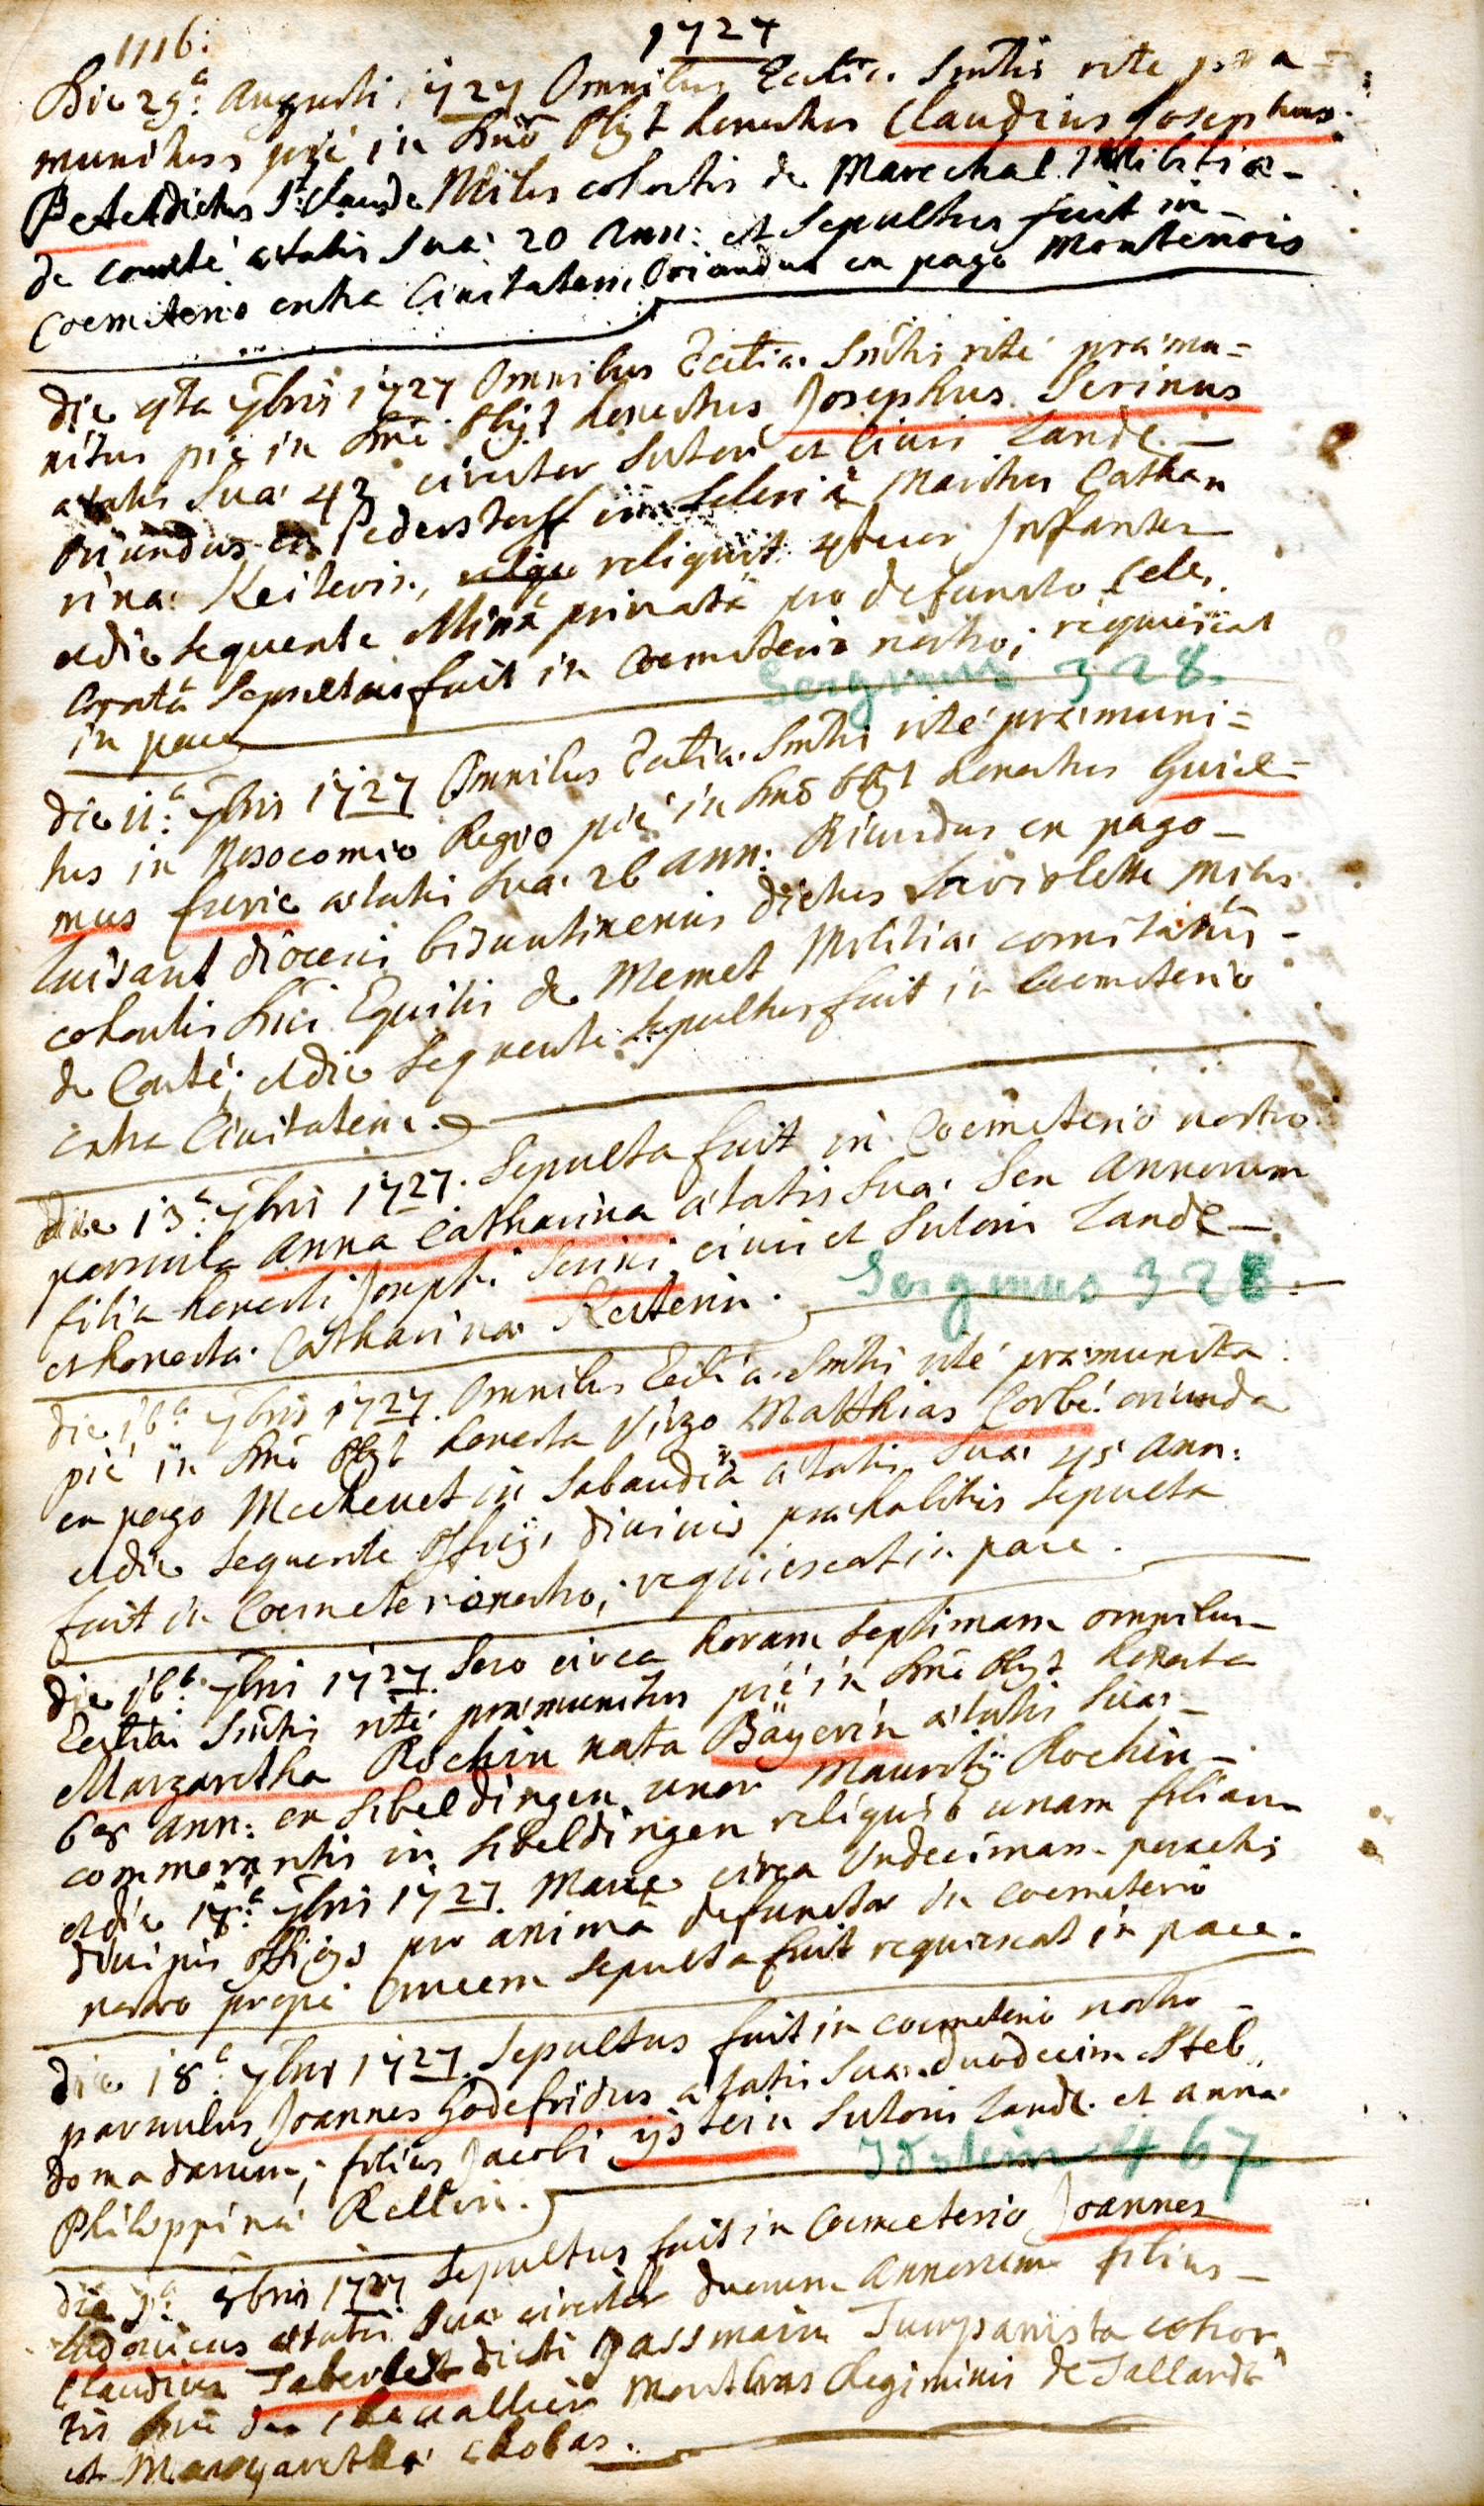 1116:
1727
Die 29a: Augusti 1727 Omnibus Eccliæ Smtis rite præ=
munitus pié in Dno Obijt honestus Claudius Josephus
dictus St: Claude Miles cohortis de Marechal Militiæ
de comté ætatis Suæ 20 Ann: et Sepultus fuit in
Coemeterio extra Civitatem Oriundus ex pago Montenois
die 9ta 7bris 1727 Omnibus Eccliæ Smtis rité præmu=
nitus pié in Dno Obijt honestus Josephus Serinus
ætatis Suæ 43 circiter Sutor et Civis Land:
Oriundus ex Pedersdorff in Silesiâ Maritus Catha
rinæ Keiterin, reliquit 4tuor Infantes
et die sequente Missâ privatâ pro defuncto cele,
bratâ Sepultus fuit in Coemeterio nostro; requiescat
in pace
Sergmus 328.
die 11a: 7bris 1727 Omnibus Eccliæ Smtis rité præmuni=
tus in Nosocomio Regio pié in Dno Obijt honestus Guiel=
mus furie ætatis Suæ 26 Ann: Oriundus ex pago
Luisant dioecesis bisuntinensis dictus La violette Miles
cohortis Dni Equitis de Memet Militiæ comitatus
de Conté; et die Sequente Sepultus fuit in Coemeterio
extra Civitatem.
die 13a: 7bris 1727. Sepulta fuit in Coemeterio nostro
parvula Anna Catharina ætatis Suæ Sex Annorum
filia honesti Josephi Serini civis et Sutoris Land:
et honestæ Catharinæ Keiterin.
Sergmus 328.
die 16a 7bris 1727. Omnibus Eccliæ Smtis rité præmunita
pié in Dno Obijt honesta Virgo Matthias Corbé oriunda
ex pago Mechenet in Sabaudiâ ætatis Suæ 45 Ann:
et die Sequente Officijs divinis prœhabitis Sepulta
fuit in Coemeterio nostro; requiescat in pace.
die 16a: 7bris 1727. Sero circa horam Septimam omnibus
Eccliæ Smtis rité præmunitus pié in Dno Obijt honesta
Margaretha Rochin nata Bäyerin ætatis Suæ
68 Ann: ex Sibeldingen uxor Mauritij Rochin
commorantis in Sibeldingen reliquit unam filiam
et die 18a: 7bris 1727. Mane circa Undecimam peractis
divinis officijs pro animâ defunctæ in coemeterio
nostro propé Crucem Sepulta fuit requiescat in pace.
die 18a: 7bris 1727. Sepultus fuit in coemeterio nostro
parvulus Joannes Godefridus ætatis Suæ duodecim Heb,,
domadarum; filius Jacobi ijstein Sutoris Land: et Anna
Philippina Rellin.
Idstein 467
die 1a: 8bris 1727 Sepultus fuit in Coemeterio Joannes
Ludovicus ætatis Suæ circiter duorum Annorum filius
Claudius dicti passmain Tumpanista cohor,
tis Dni de chevallier Montbas Regiminis de Tallarda
et Margaretha chobas.